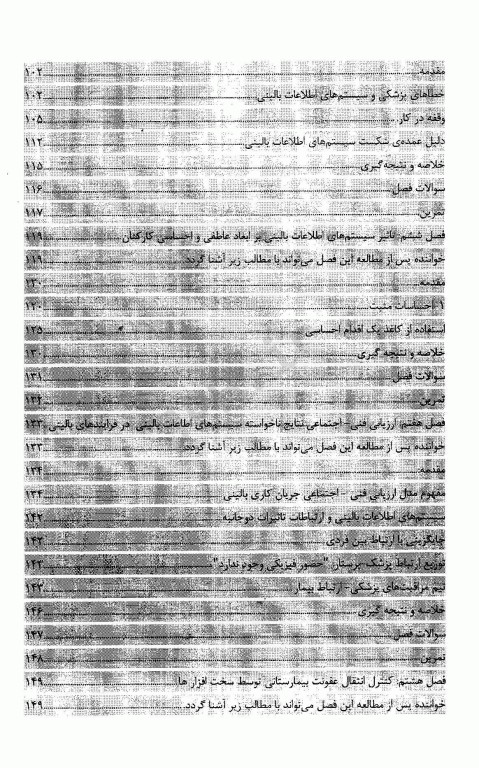 مقدمه ۱۰۲
خطاهای پزشکی و سیستم‌های اطلاعات بالینی ۱۰۲
وقفه در کار ۱۰۵
دلیل عمده‌ی شکست سیستم‌های اطلاعات بالینی ۱۱۲
خلاصه و نتیجه گیری ۱۱۵
سوالات فصل ۱۱۶
تمرین ۱۱۷
فصل ششم: تاثیر سیستم‌های اطلاعات بالینی بر ابعاد عاطفی و احساسی کارکنان ۱۱۹
خواننده پس از مطالعه این فصل می‌تواند با مطالب زیر آشنا گردد: ۱۱۹
مقدمه ۱۲۰
۱ احساسات مثبت ۱۲۰
استفاده از کاغذ یک اقدام احساسی ۱۲۵
خلاصه و نتیجه گیری ۱۳۰
سوالات فصل ۱۳۱
تمرین ۱۳۲
فصل هفتم: ارزیابی فنی- اجتماعی نتایج ناخواسته سیستم‌های اطاعات بالینی در فرایندهای بالینی ۱۳۳
خواننده پس از مطالعه این فصل می‌تواند با مطالب زیر آشنا گردد: ۱۳۳
مقدمه ۱۳۴
مفهوم مدل ارزیابی فنی - اجتماعی جریان کاری بالینی ۱۳۴
سیستم‌های اطلاعات بالینی و ارتباطات تاثیرات دوجانبه ۱۴۲
جایگزینی با ارتباط بین فردی ۱۴۳
توزیع ارتباط پزشک-پرستار: "حضور فیزیکی وجود ندارد" ۱۴۳
تیم مراقبت‌های پزشکی- ارتباط بیمار ۱۴۴
خلاصه و نتیجه گیری ۱۴۶
سوالات فصل ۱۴۷
تمرین ۱۴۸
فصل هشتم: کنترل انتقال عفونت بیمارستانی توسط سخت افزار ها ۱۴۹
خواننده پس از مطالعه این فصل می‌تواند با مطالب زیر آشنا گردد: ۱۴۹